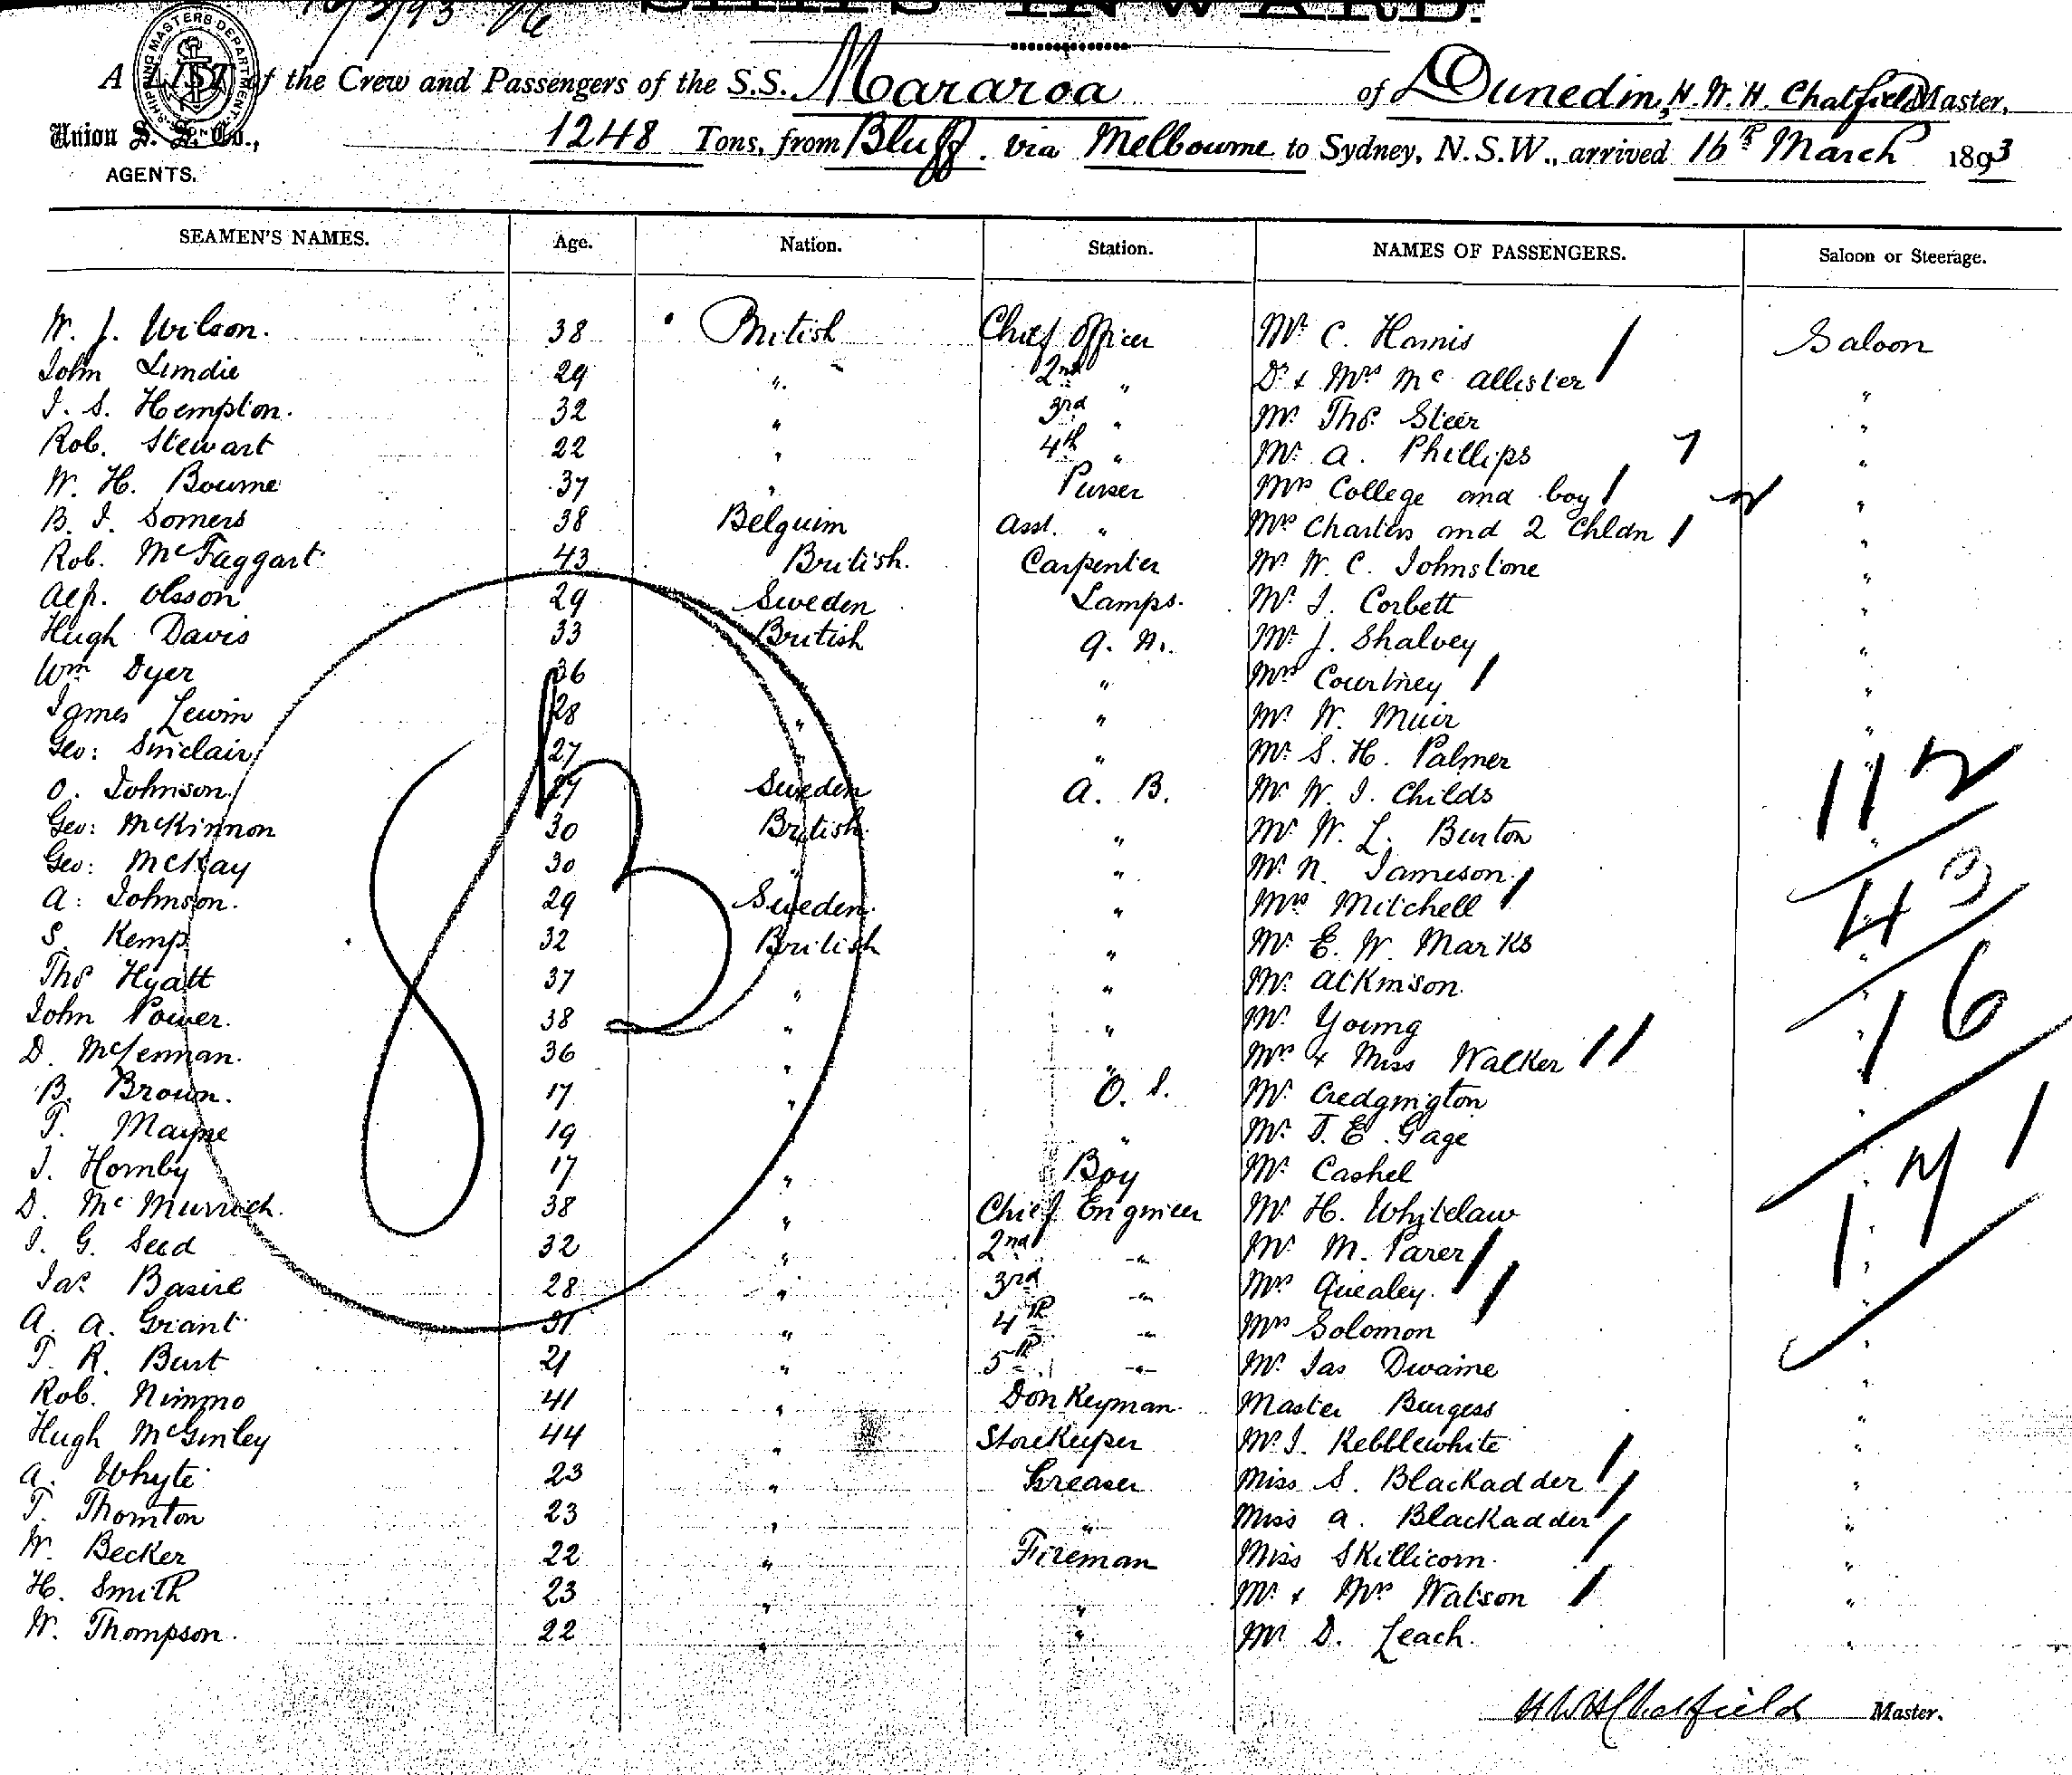 16/3/93
SHIPS INWARD.
SHIPPING MASTERS DEPARTMENT
A LIST of the Crew and Passengers of the S.S. Mararoa of Dunedin, H. W. H. Chatfield Master,
Union S. S. Co., 1248 Tons, from Bluff. via Melbourne to Sydney, N.S.W., arrived 16th March 1893
AGENTS.
SEAMEN'S NAMES. Age. Nation. Station. NAMES OF PASSENGERS. Saloon or Steerage.
W. J. Wilson. 38 British Chief Officer Mr C. Harris Saloon
John Lundie 29 " 2nd " Dr & Mrs McAllister "
J. S. Hempton. 32 " 3rd " Mr Thos Steer "
Rob. Stewart 22 " 4th " Mr A. Phillips "
W. H. Bourne 37 " Purser Mrs College and boy "
B. J. Somers 38 Belguim Asst. " Mrs Charters and 2 Chldn "
Rob. McTaggart 43 British. Carpenter Mr W. C. Johnstone "
Alf. Olsson 29 Sweden Lamps. Mr J. Corbett "
Hugh Davis 33 British Q. M. Mr J. Shalvey "
Wm Dyer 36 " Mrs Courtney "
James Lewin 28 " " Mr W. Muir "
Geo: Sinclair 27 " Mr S. H. Palmer "
O. Johnson. 27 Sweden A. B. Mr W. J. Childs
Geo: McKinnon 30 British " Mr W. L. Burton "
Geo: McKay 30 " " Mr N. Jameson.
A. Johnson. 29 Sweden. " Mrs Mitchell
S. Kemp 32 British " Mr E. W. Marks "
Thos Hyatt 37 " " Mr Atkinson. "
John Power. 38 " " Mr Young "
D. McLennan. 36 " " Mrs & Miss Walker "
B. Brown. 17 " O. S. Mr Credgington "
T. Mayne 19 " Mr T. E. Gage "
J. Hornby 17 " Boy Mr Cashel "
D. McMurrich. 38 " Chief Engineer Mr H. Whitelaw "
J. G. Seed 32 " 2nd " Mr M. Parer "
Jas Basire 28 " 3rd " Mrs Quealey. "
A. A. Grant 31 " 4th " Mrs Solomon "
T. R. Burt 21 " 5th " Mr Jas Dwaine "
Rob. Nimmo 41 " Donkeyman. Master Burgess "
Hugh McGinley 44 " Storekeeper Mr J. Kebblewhite "
A. Whyte 23 " Greaser Miss S. Blackadder "
T. Thornton 23 " " Miss A. Blackadder "
W. Becker 22 " Fireman Miss Skillicorn. "
H. Smith 23 " " Mr & Mrs Watson "
W. Thompson. 22 " " Mr D. Leach. "
83
112
43
16
171
H W H Chatfield Master.